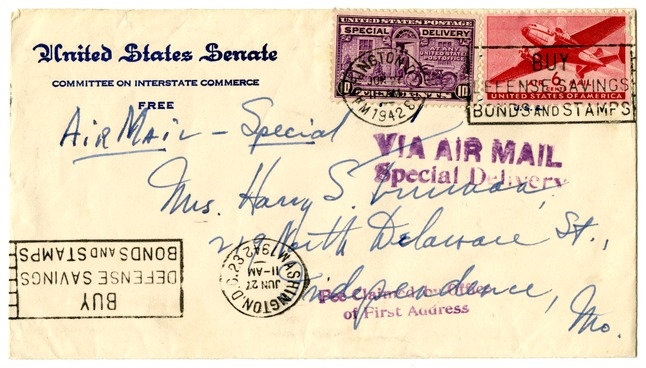 United States Senate
COMMITTEE ON INTERSTATE COMMERCE
FREE
UNITED STATES POSTAGE
SPECIAL DELIVERY
AT ANY
UNITED STATES
POST OFFICE
10 10
AIR MAIL
6
UNITED STATES OF AMERICA
1942
BUY
DEFENSE SAVINGS
BONDS AND STAMPS
Air Mail - Special
VIA AIR MAIL
Special Delivery
Mrs. Harry S. Truman,
219 North Delaware St.,
Independence,
Mo.
WASHINGTON, D.C. 23
JUN 27
11-AM
1942
BUY
DEFENSE SAVINGS
BONDS AND STAMPS
Fee Claimed by Office
of First Address